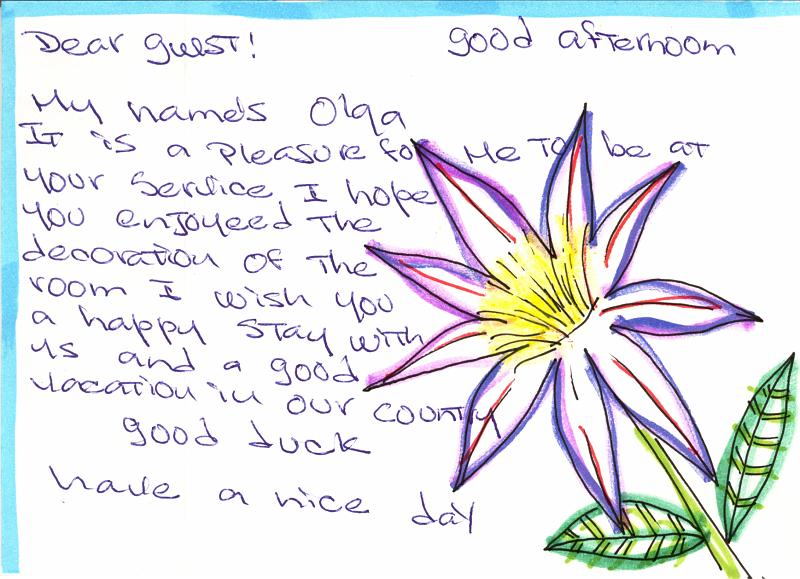 Dear guest!
good afternoom
My name's Olga
It is a pleasure for me to be at
your service I hope
you enjoyeed the
decoration of the
room I wish you
a happy stay with
us and a good
vacation in our country
good duck
have a nice day